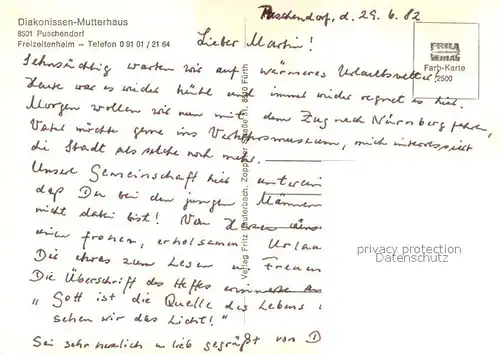 Diakonissen-Mutterhaus
8501 Puschendorf
Freizeitenheim – Telefon 0 91 01 / 21 64
Puschendorf, d. 29.6.82
FRILA
VERLAG
Farb-Karte
2500
Lieber Martin!
Sehnsüchtig warten wir auf wärmeres Urlaubswetter.
Heute war es wieder kühl und immer wieder regnet es hier.
Morgen wollen wir nun mit dem Zug nach Nürnberg fahren,
Vater möchte gerne ins Verkehrsmuseum, mich interessiert
die Stadt als solche noch mehr.
Unsere Gemeinschaft hier
daß Du bei den jungen Männern
nicht dabei bist! Von Herzen
einen frohen, erholsamen Urlau
Die etwas zum Lesen Freuen
Die Überschrift des Heftes
"Gott ist die Quelle des Lebens
sehen wir das Licht!"
Sei sehr herzlich u. lieb gegrüßt von D
Verlag Fritz Lauterbach, Zoppoter Straße 8510 Fürth
privacy protection
watermark